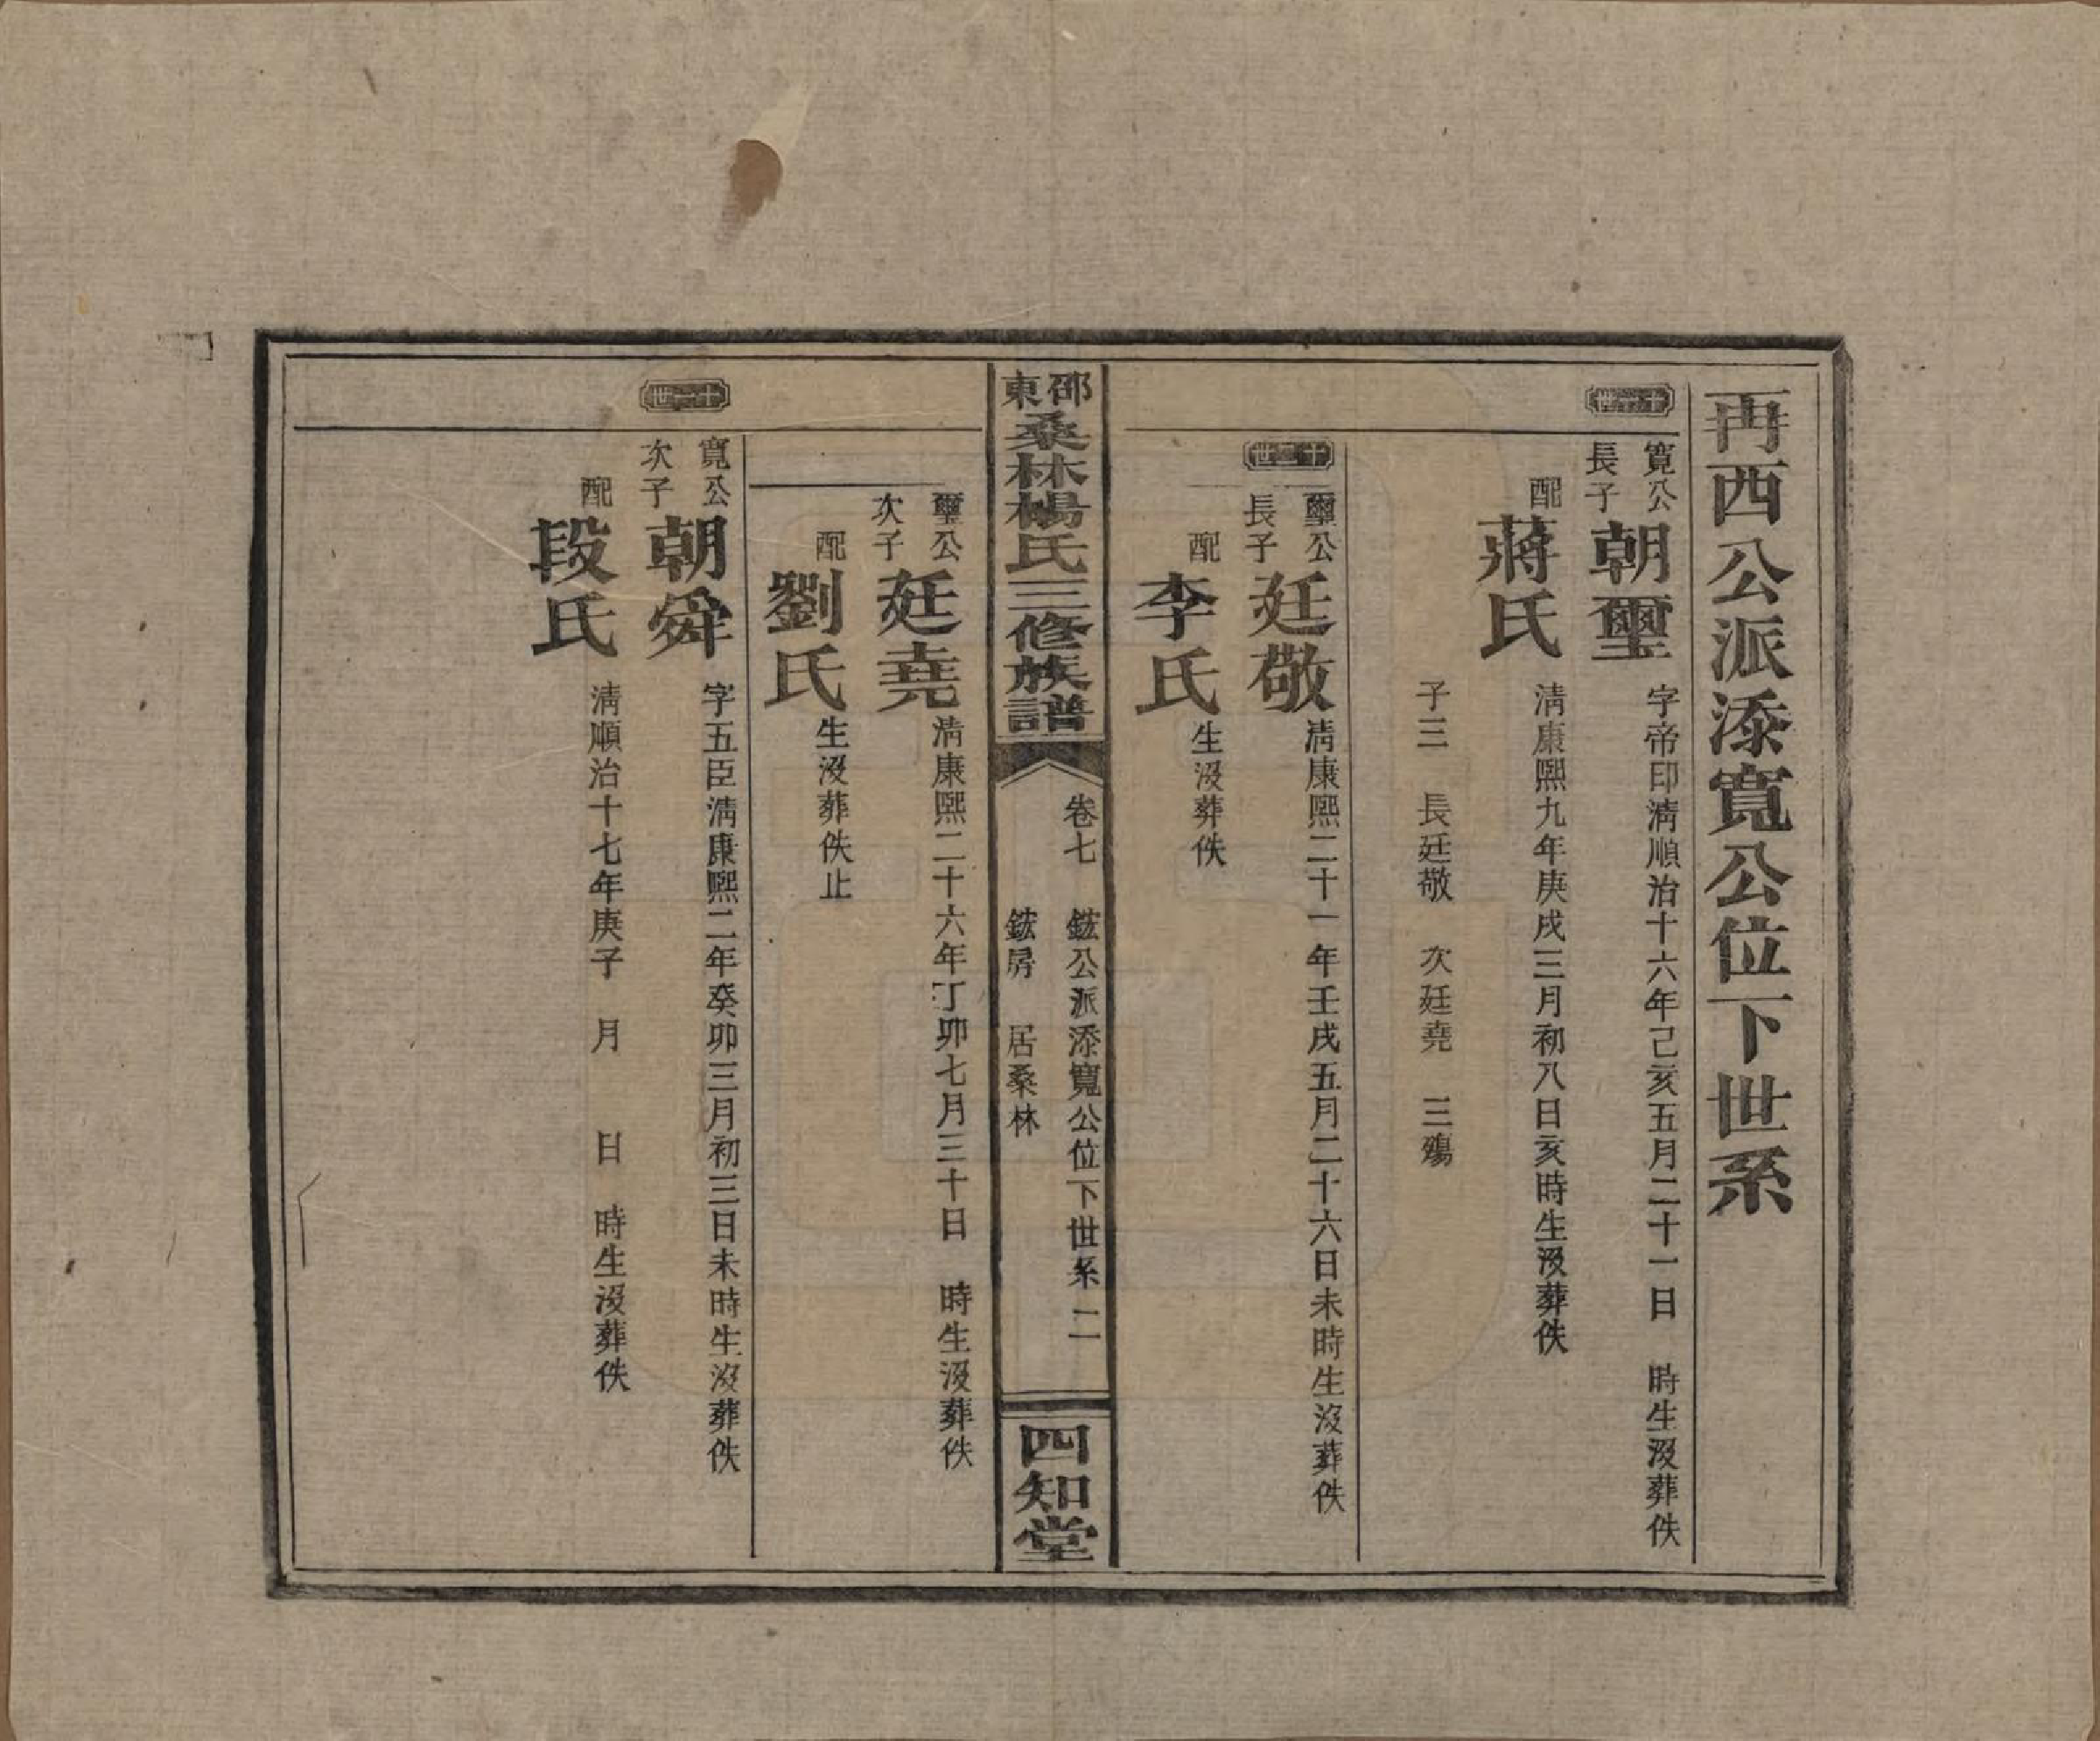 再西公派添寬公位下世系
十一世
寬公長子
朝璽
字帝印淸順治十六年己亥五月二十一日　時生沒葬佚
配
蔣氏
淸康熙九年庚戌三月初八日亥時生沒葬佚
子三　長廷敬　次廷堯　三殤
十二世
璽公長子
廷敬
淸康熙二十一年壬戌五月二十六日未時生沒葬佚
配
李氏
生沒葬佚
邵東桑林楊氏三修族譜
卷七　鋐公派添寬公位下世系　二
鋐房　居桑林
四知堂
璽公次子
廷堯
淸康熙二十六年丁卯七月三十日　時生沒葬佚
配
劉氏
生沒葬佚止
十一世
寬公次子
朝舜
字五臣淸康熙二年癸卯三月初三日未時生沒葬佚
配
段氏
淸順治十七年庚子　月　　日　時生沒葬佚